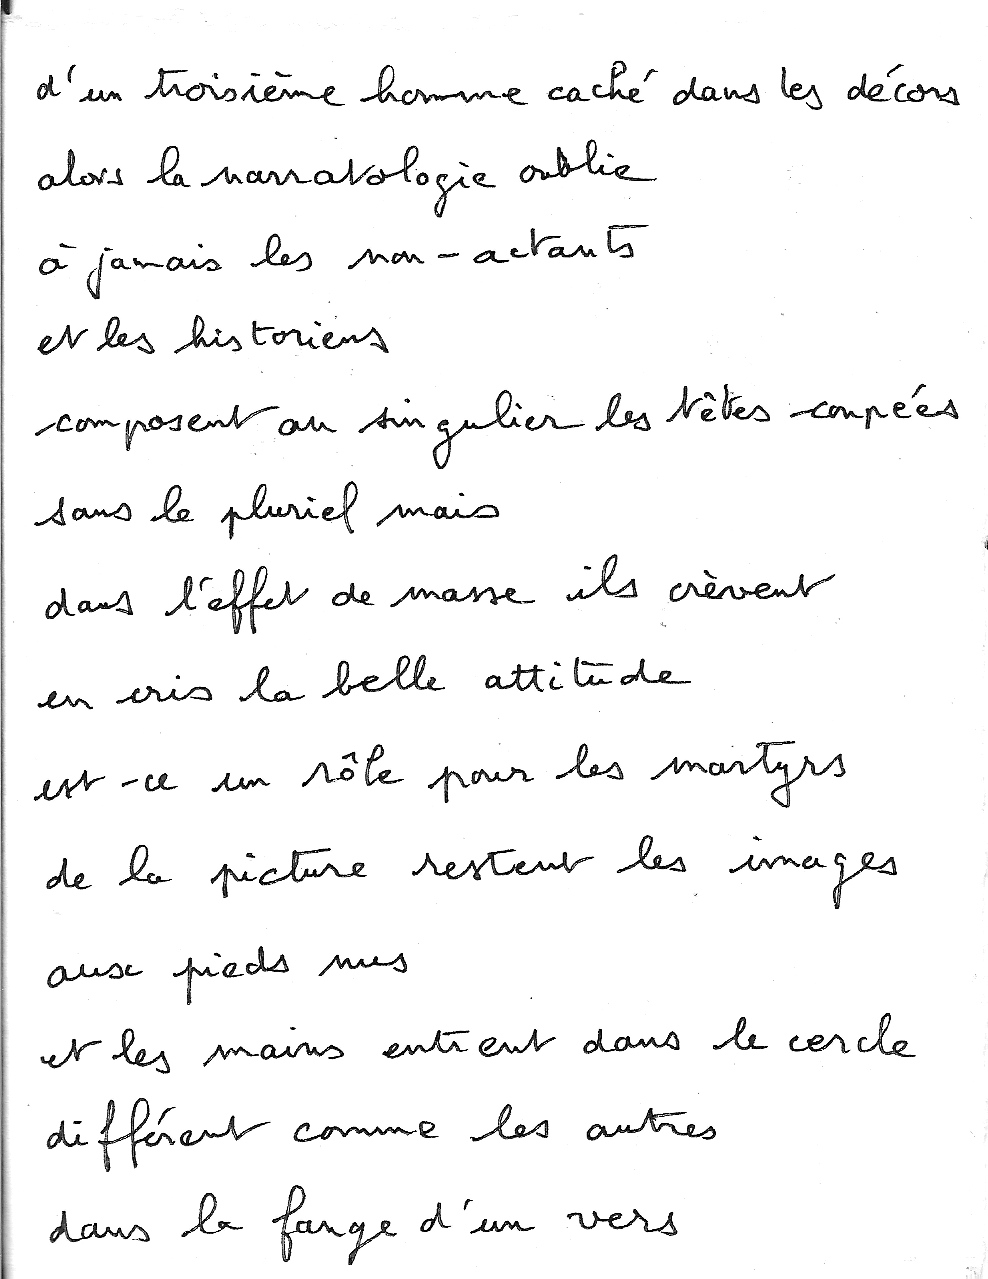 d'un troisième homme caché dans les décors
alors la narratologie oublie
à jamais les non-actants
et les historiens
composent au singulier les têtes coupées
sans le pluriel mais
dans l'effet de masse ils crèvent
en cris la belle attitude
est-ce un rôle pour les martyrs
de la picture restent les images
aux pieds nus
et les mains entrent dans le cercle
différent comme les autres
dans la fange d'un vers